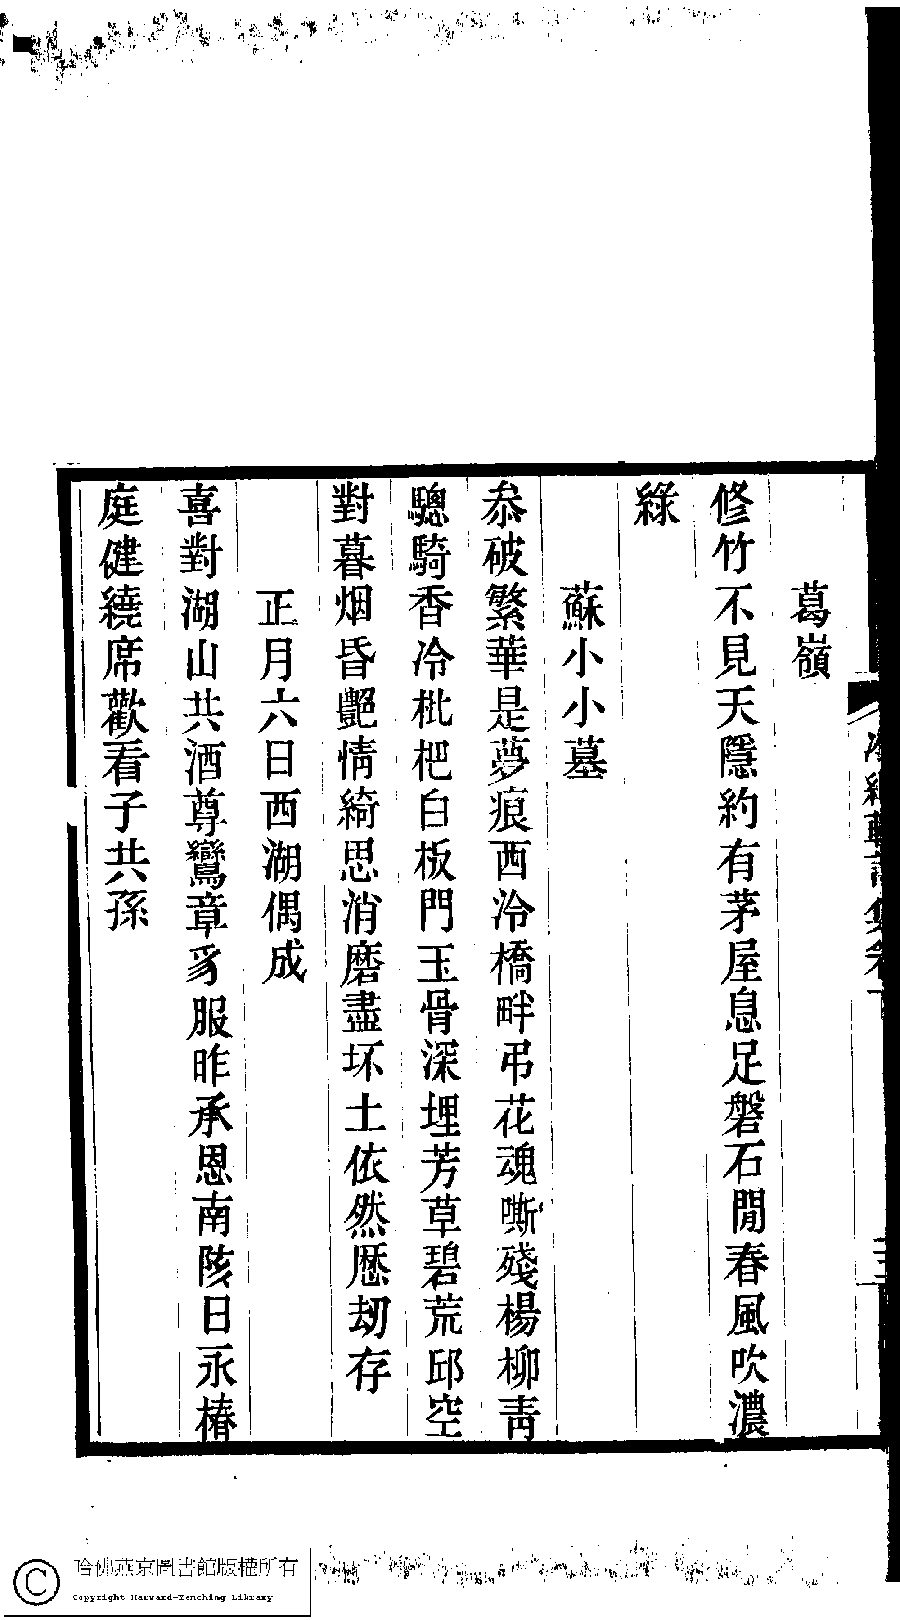 葛嶺
修竹不見天隱約有茅屋息足磐石閒春風吹濃
綠
蘇小小墓
叅破繁華是夢痕西泠橋畔弔花魂嘶殘楊柳靑
驄騎香冷枇杷白板門玉骨深埋芳草碧荒邱空
對暮烟昏艷情綺思消磨盡坏土依然歷刼存
正月六日西湖偶成
喜對湖山共酒尊鸞章豸服昨承恩南陔日永椿
庭健繞席歡看子共孫
哈佛燕京圖書館版權所有
Copyright Harvard-Yenching Library